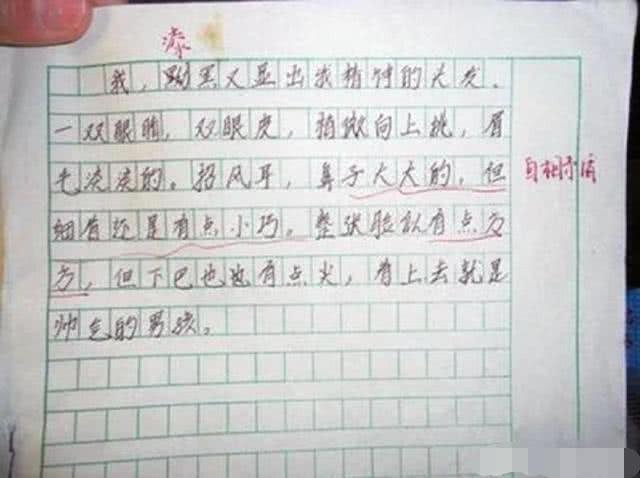 漆
我，黝黑又显出我精神的大发。
一双眼睛，双眼皮，稍微向上挑，眉
毛淡淡的。招风耳，鼻子大大的，但
细看还是有点小巧。整张脸似有点方
方，但下巴也也有点尖，看上去就是
帅气的男孩。
自相矛盾